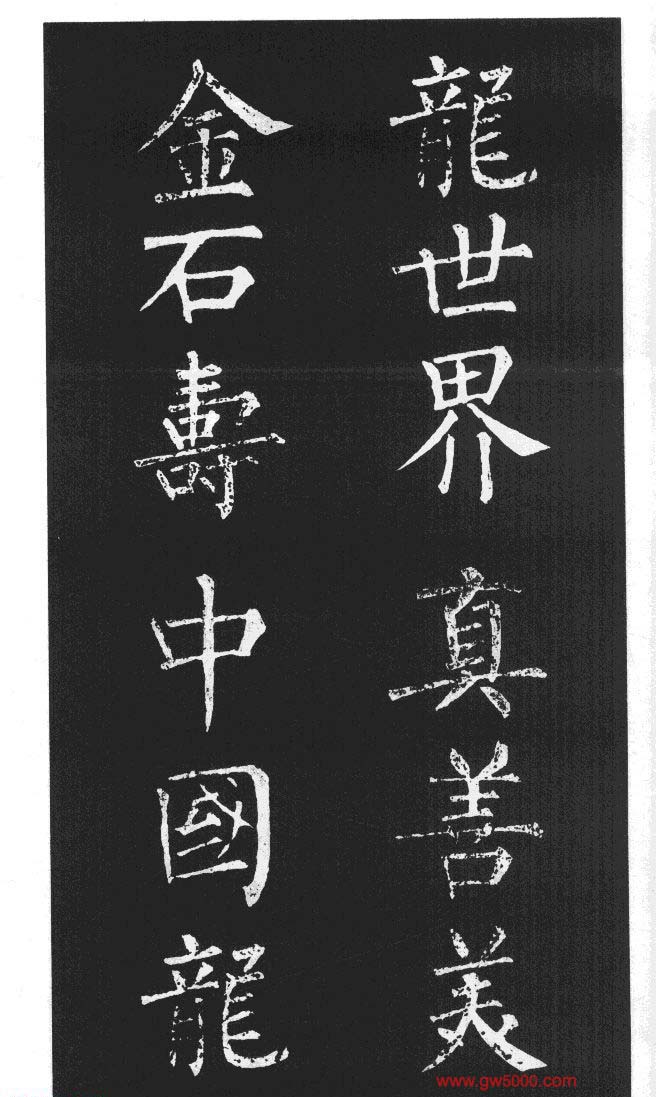 龍世界真善美
金石壽中國龍
www.gw5000.com